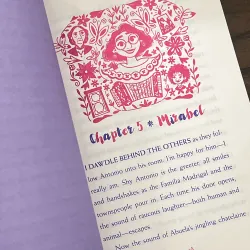 Chapter 5 * Mirabel
I DAWDLE BEHIND THE OTHERS as they fol-
low Antonio into his room. I'm happy for him—I
really am. Shy Antonio is the greeter, all smiles
and handshakes as the Familia Madrigal and the
townspeople pour in. Each time his door opens,
the sound of raucous laughter—both human and
animal—escapes.
Now the sound of Abuela's jingling chatelaine